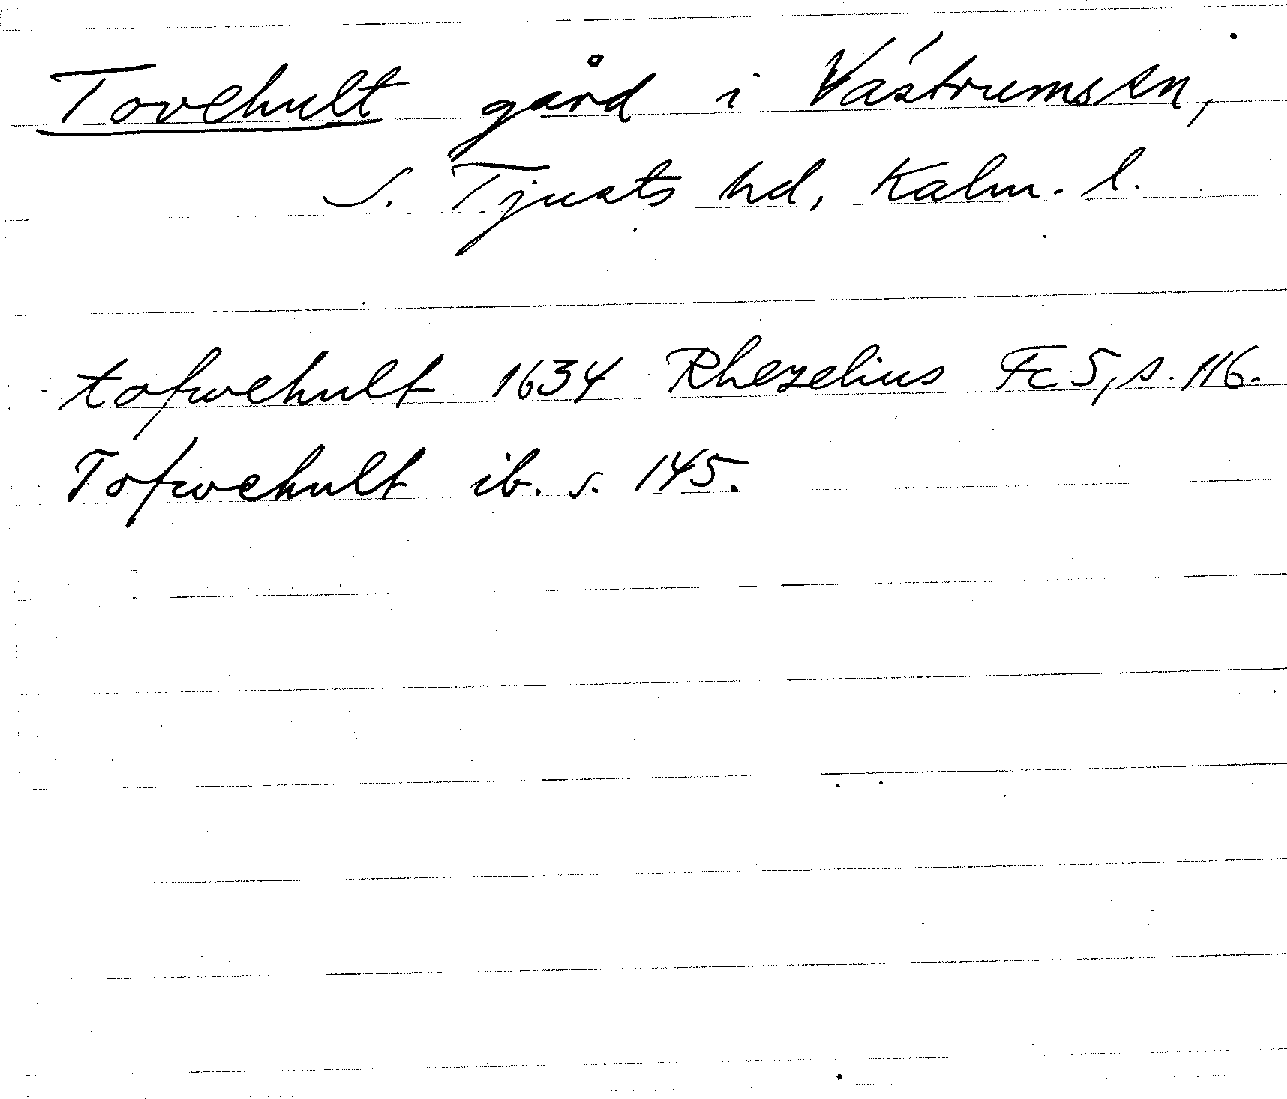 Tovehult gård i Västrums sn,
S. Tjusts hd, Kalm. l.
tofwehult 1634 Rhezelius Fc 5, s. 116.
Tofwehult ib. s. 145.